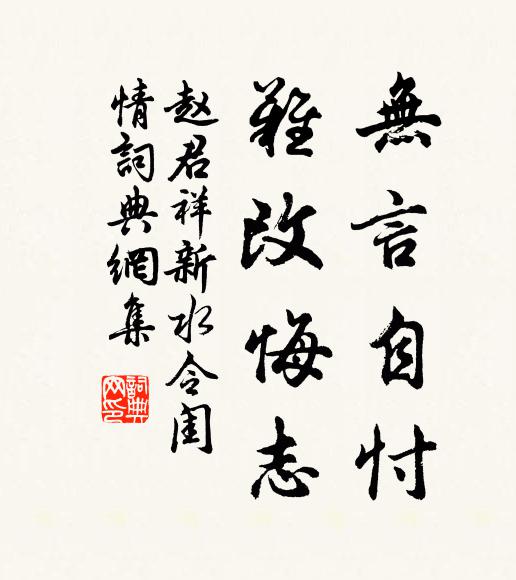 無言自忖
難改悔志
赵君祥新水令闺
情詞典網集
詞典网印